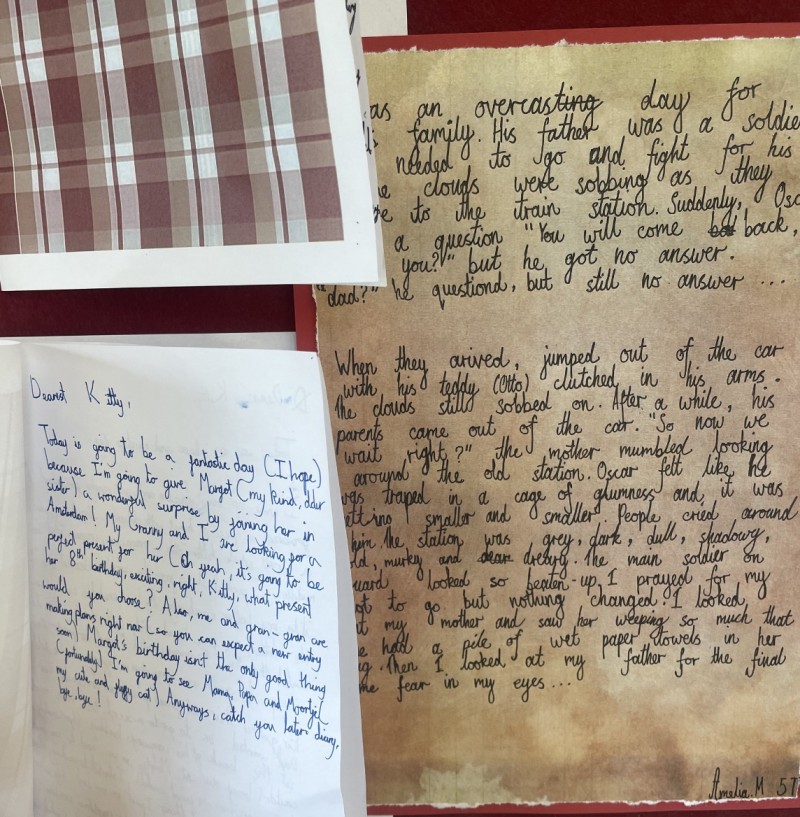 Dearest Kitty,
Today is going to be a fantastic day (I hope)
because I'm going to give Margot (my kind, older
sister) a wonderful surprise by joining her in
Amsterdam! My Granny and I are looking for a
perfect present for her (oh yeah, it's going to be
her 8th birthday, exciting, right, Kitty, what present
would you choose? Also, me and gran-gran are
making plans right now (so you can expect a new entry
soon) Margot's birthday isn't the only good thing
(fortunatly) I'm going to see Mama, Papa and Moortjel
my cute and cat) Anyways, catch you later diary,
bye, bye!
as an overcasting day for
family. His father was a soldie
needed to go and fight for his
e clouds were sobbing as they
re to the train station. Suddenly, Osc
a question "You will come back,
you?" but he got no answer.
"dad?" he questiond, but still no answer ...
When they arived, jumped out of the car
with his teddy (Otto) clutched in his arms.
The clouds still sobbed on. After a while, his
parents came out of the car. "So now we
wait right?" the mother mumbled looking
around the old station. Oscar felt like he
was traped in a cage of glumness and it was
etting smaller and smaller. People cried around
him. the station was grey, dark, dull, shadowy,
ld, murky and dreary. The main soldier on
uard looked so beaten-up. I prayed for my
ot to go but nothing changed. I looked
t my mother and saw her weeping so much that
e had a pile of wet paper towels in her
g. Then I looked at my father for the final
me fear in my eyes...
Amelia.M 5T